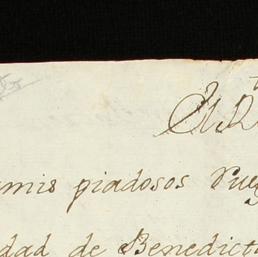 M. R.
amis piadosos rueg
dad de Benedicto